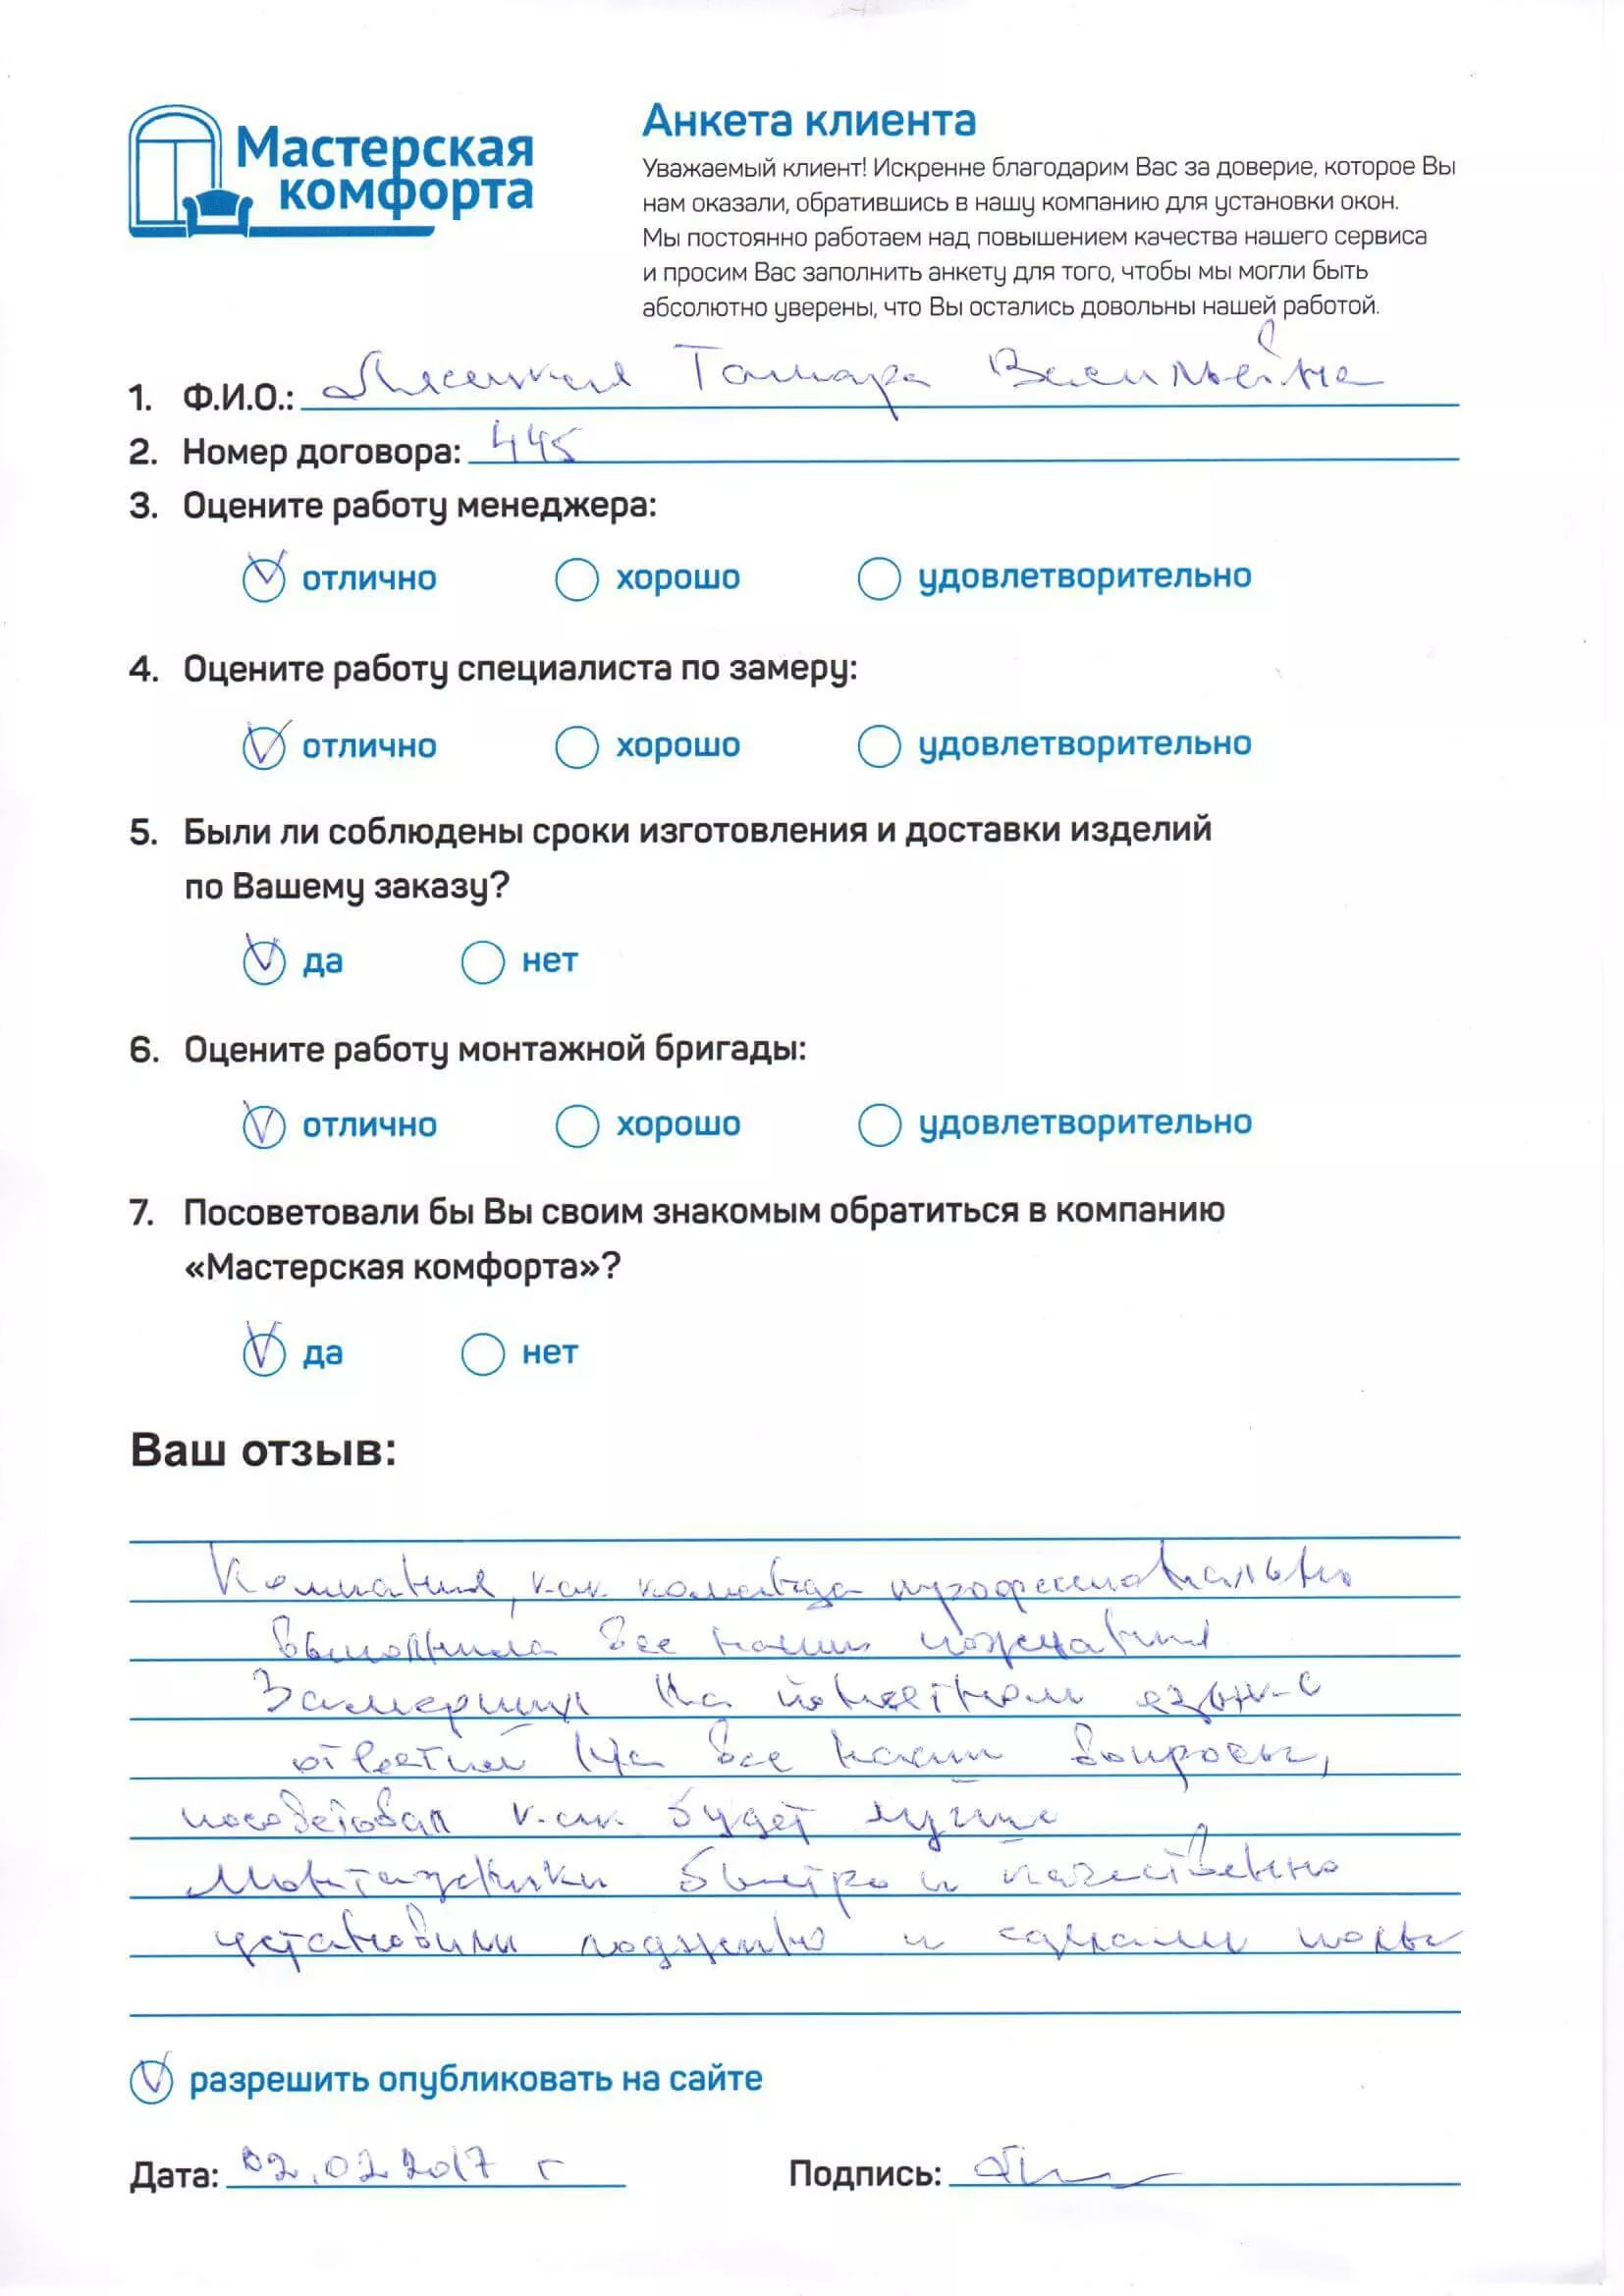 Мастерская
комфорта
Анкета клиента
Уважаемый клиент! Искренне благодарим Вас за доверие, которое Вы
нам оказали, обратившись в нашу компанию для установки окон.
Мы постоянно работаем над повышением качества нашего сервиса
и просим Вас заполнить анкету для того, чтобы мы могли быть
абсолютно уверены, что Вы остались довольны нашей работой.
1. Ф.И.О.: Тамара Васильевна
2. Номер договора: 445
3. Оцените работу менеджера:
отлично хорошо удовлетворительно
4. Оцените работу специалиста по замеру:
отлично хорошо удовлетворительно
5. Были ли соблюдены сроки изготовления и доставки изделий
по Вашему заказу?
да нет
6. Оцените работу монтажной бригады:
отлично хорошо удовлетворительно
7. Посоветовали бы Вы своим знакомым обратиться в компанию
«Мастерская комфорта»?
да нет
Ваш отзыв:
Компания, как команда профессионально
выполнила все наши пожелания
Замерщик на понятном языке
ответил на все наши вопросы,
посоветовал как будет лучше
Монтажники быстро и качественно
установили лоджию и сделали полы
разрешить опубликовать на сайте
Дата: 02.02 2017 г
Подпись: